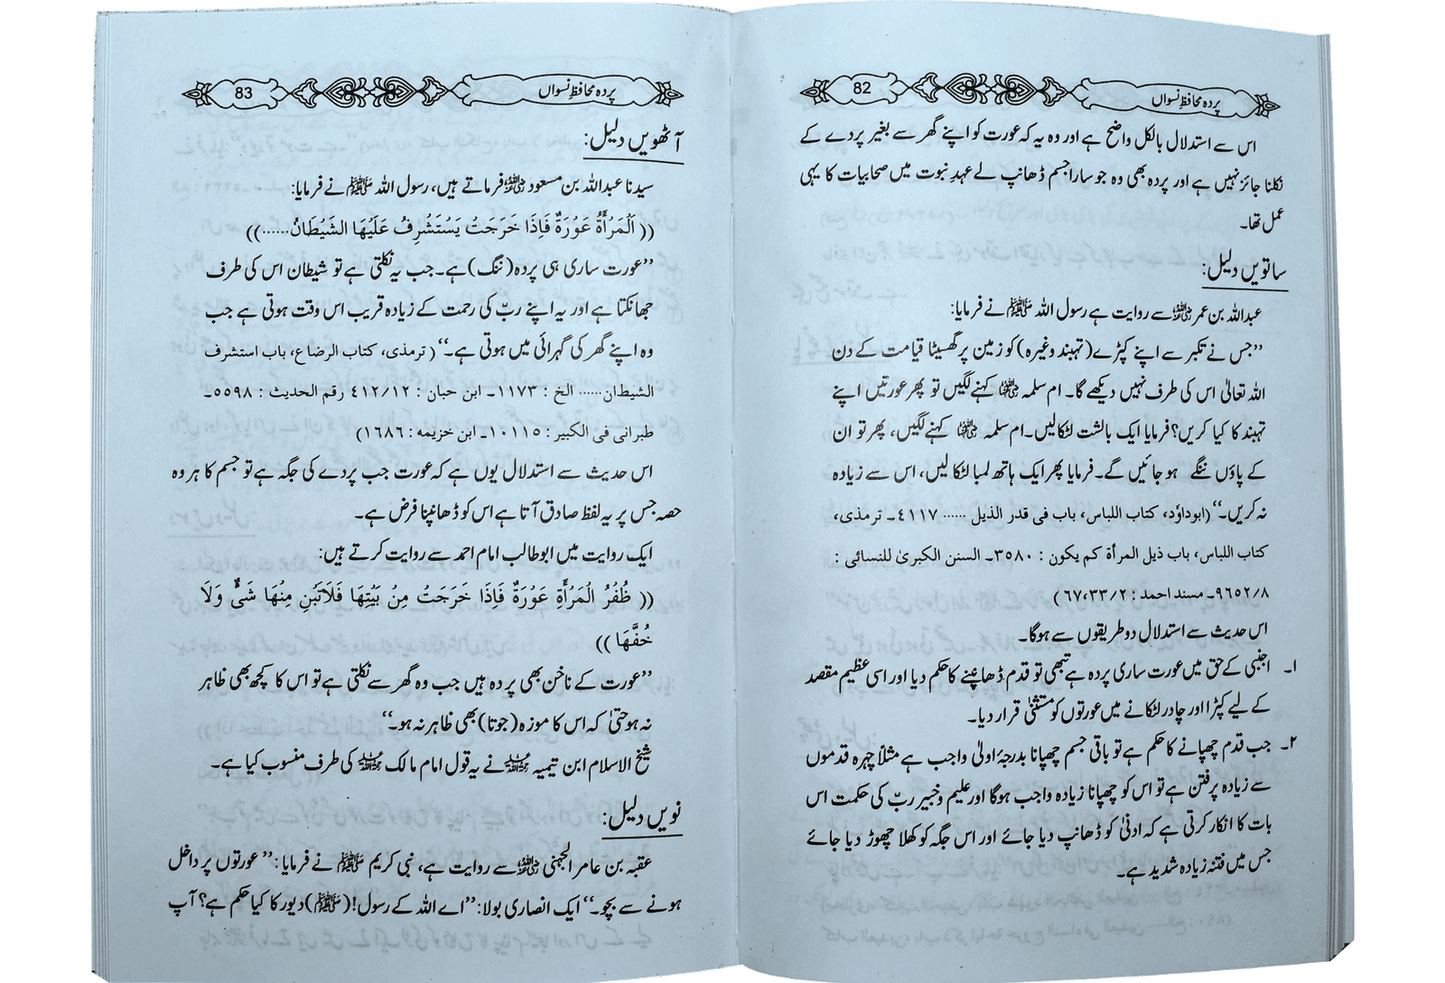 82
پردہ محافظِ نسواں
اس سے استدلال بالکل واضح ہے اور وہ یہ کہ عورت کو اپنے گھر سے بغیر پردے کے
نکلنا جائز نہیں ہے اور پردہ بھی وہ جو سارا جسم ڈھانپ لے عہدِ نبوت میں صحابیات کا یہی
عمل تھا۔
ساتویں دلیل:
عبداللہ بن عمر رضی اللہ عنہما سے روایت ہے رسول اللہ ﷺ نے فرمایا:
’’جس نے تکبر سے اپنے کپڑے (تہبند وغیرہ) کو زمین پر گھسیٹا قیامت کے دن
اللہ تعالیٰ اس کی طرف نہیں دیکھے گا۔ ام سلمہ رضی اللہ عنہا کہنے لگیں تو پھر عورتیں اپنے
تہبند کا کیا کریں؟ فرمایا ایک بالشت لٹکا لیں۔ ام سلمہ رضی اللہ عنہا کہنے لگیں، پھر تو ان
کے پاؤں ننگے ہو جائیں گے۔ فرمایا پھر ایک ہاتھ لمبا لٹکا لیں، اس سے زیادہ
نہ کریں۔‘‘ (ابوداؤد، کتاب اللباس، باب فی قدر الذیل ...... ٤١١٧۔ ترمذی،
کتاب اللباس، باب ذیل المرأة کم یکون : ٣٥٨٠۔ السنن الکبریٰ للنسائی :
٩٦٥٢/٨۔ مسند احمد : ٦٧،٣٣/٢)
اس حدیث سے استدلال دو طریقوں سے ہوگا۔
۱۔ اجنبی کے حق میں عورت ساری پردہ ہے تبھی تو قدم ڈھانپنے کا حکم دیا اور اسی عظیم مقصد
کے لیے کپڑا اور چادر لٹکانے میں عورتوں کو مستثنیٰ قرار دیا۔
۲۔ جب قدم چھپانے کا حکم ہے تو باقی جسم چھپانا بدرجۂ اولیٰ واجب ہے مثلاً چہرہ قدموں
سے زیادہ پرفتن ہے تو اس کو چھپانا زیادہ واجب ہوگا اور علیم وخبیر ربّ کی حکمت اس
بات کا انکار کرتی ہے کہ ادنیٰ کو ڈھانپ دیا جائے اور اس جگہ کو کھلا چھوڑ دیا جائے
جس میں فتنہ زیادہ شدید ہے۔
83
پردہ محافظِ نسواں
آٹھویں دلیل:
سیدنا عبداللہ بن مسعود رضی اللہ عنہ فرماتے ہیں، رسول اللہ ﷺ نے فرمایا:
(( اَلْمَرْأَةُ عَوْرَةٌ فَإِذَا خَرَجَتْ يَسْتَشْرِفُ عَلَيْهَا الشَّيْطَانُ......))
’’عورت ساری ہی پردہ (ننگ) ہے۔ جب یہ نکلتی ہے تو شیطان اس کی طرف
جھانکتا ہے اور یہ اپنے ربّ کی رحمت کے زیادہ قریب اس وقت ہوتی ہے جب
وہ اپنے گھر کی گہرائی میں ہوتی ہے۔‘‘ ( ترمذی، کتاب الرضاع، باب استشرف
الشیطان...... الخ : ١١٧٣۔ ابن حبان : ٤١٢/١٢ رقم الحدیث : ٥٥٩٨۔
طبرانی فی الکبیر : ١٠١١٥۔ ابن خزیمہ : ١٦٨٦)
اس حدیث سے استدلال یوں ہے کہ عورت جب پردے کی جگہ ہے تو جسم کا ہر وہ
حصہ جس پر یہ لفظ صادق آتا ہے اس کو ڈھانپنا فرض ہے۔
ایک روایت میں ابوطالب امام احمد سے روایت کرتے ہیں:
(( ظُفْرُ الْمَرْأَةِ عَوْرَةٌ فَإِذَا خَرَجَتْ مِنْ بَيْتِهَا فَلَاتَبَنِ مِنْهَا شَيْءٌ وَلَا
خُفَّهَا ))
’’عورت کے ناخن بھی پردہ ہیں جب وہ گھر سے نکلتی ہے تو اس کا کچھ بھی ظاہر
نہ ہو حتیٰ کہ اس کا موزہ (جوتا) بھی ظاہر نہ ہو۔‘‘
شیخ الاسلام ابن تیمیہ رحمہ اللہ نے یہ قول امام مالک رحمہ اللہ کی طرف منسوب کیا ہے۔
نویں دلیل:
عقبہ بن عامر الجہنی رضی اللہ عنہ سے روایت ہے، نبی کریم ﷺ نے فرمایا: ’’عورتوں پر داخل
ہونے سے بچو۔‘‘ ایک انصاری بولا: ’’اے اللہ کے رسول! (ﷺ) دیور کا کیا حکم ہے؟ آپ